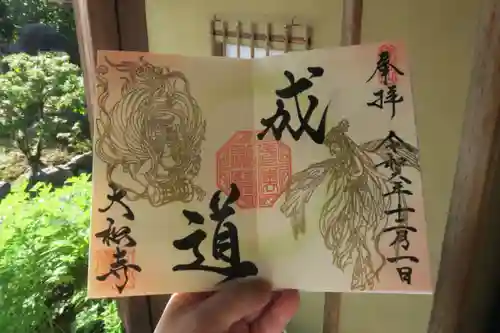 奉拝
令和六年十二月一日
成道
大松寺